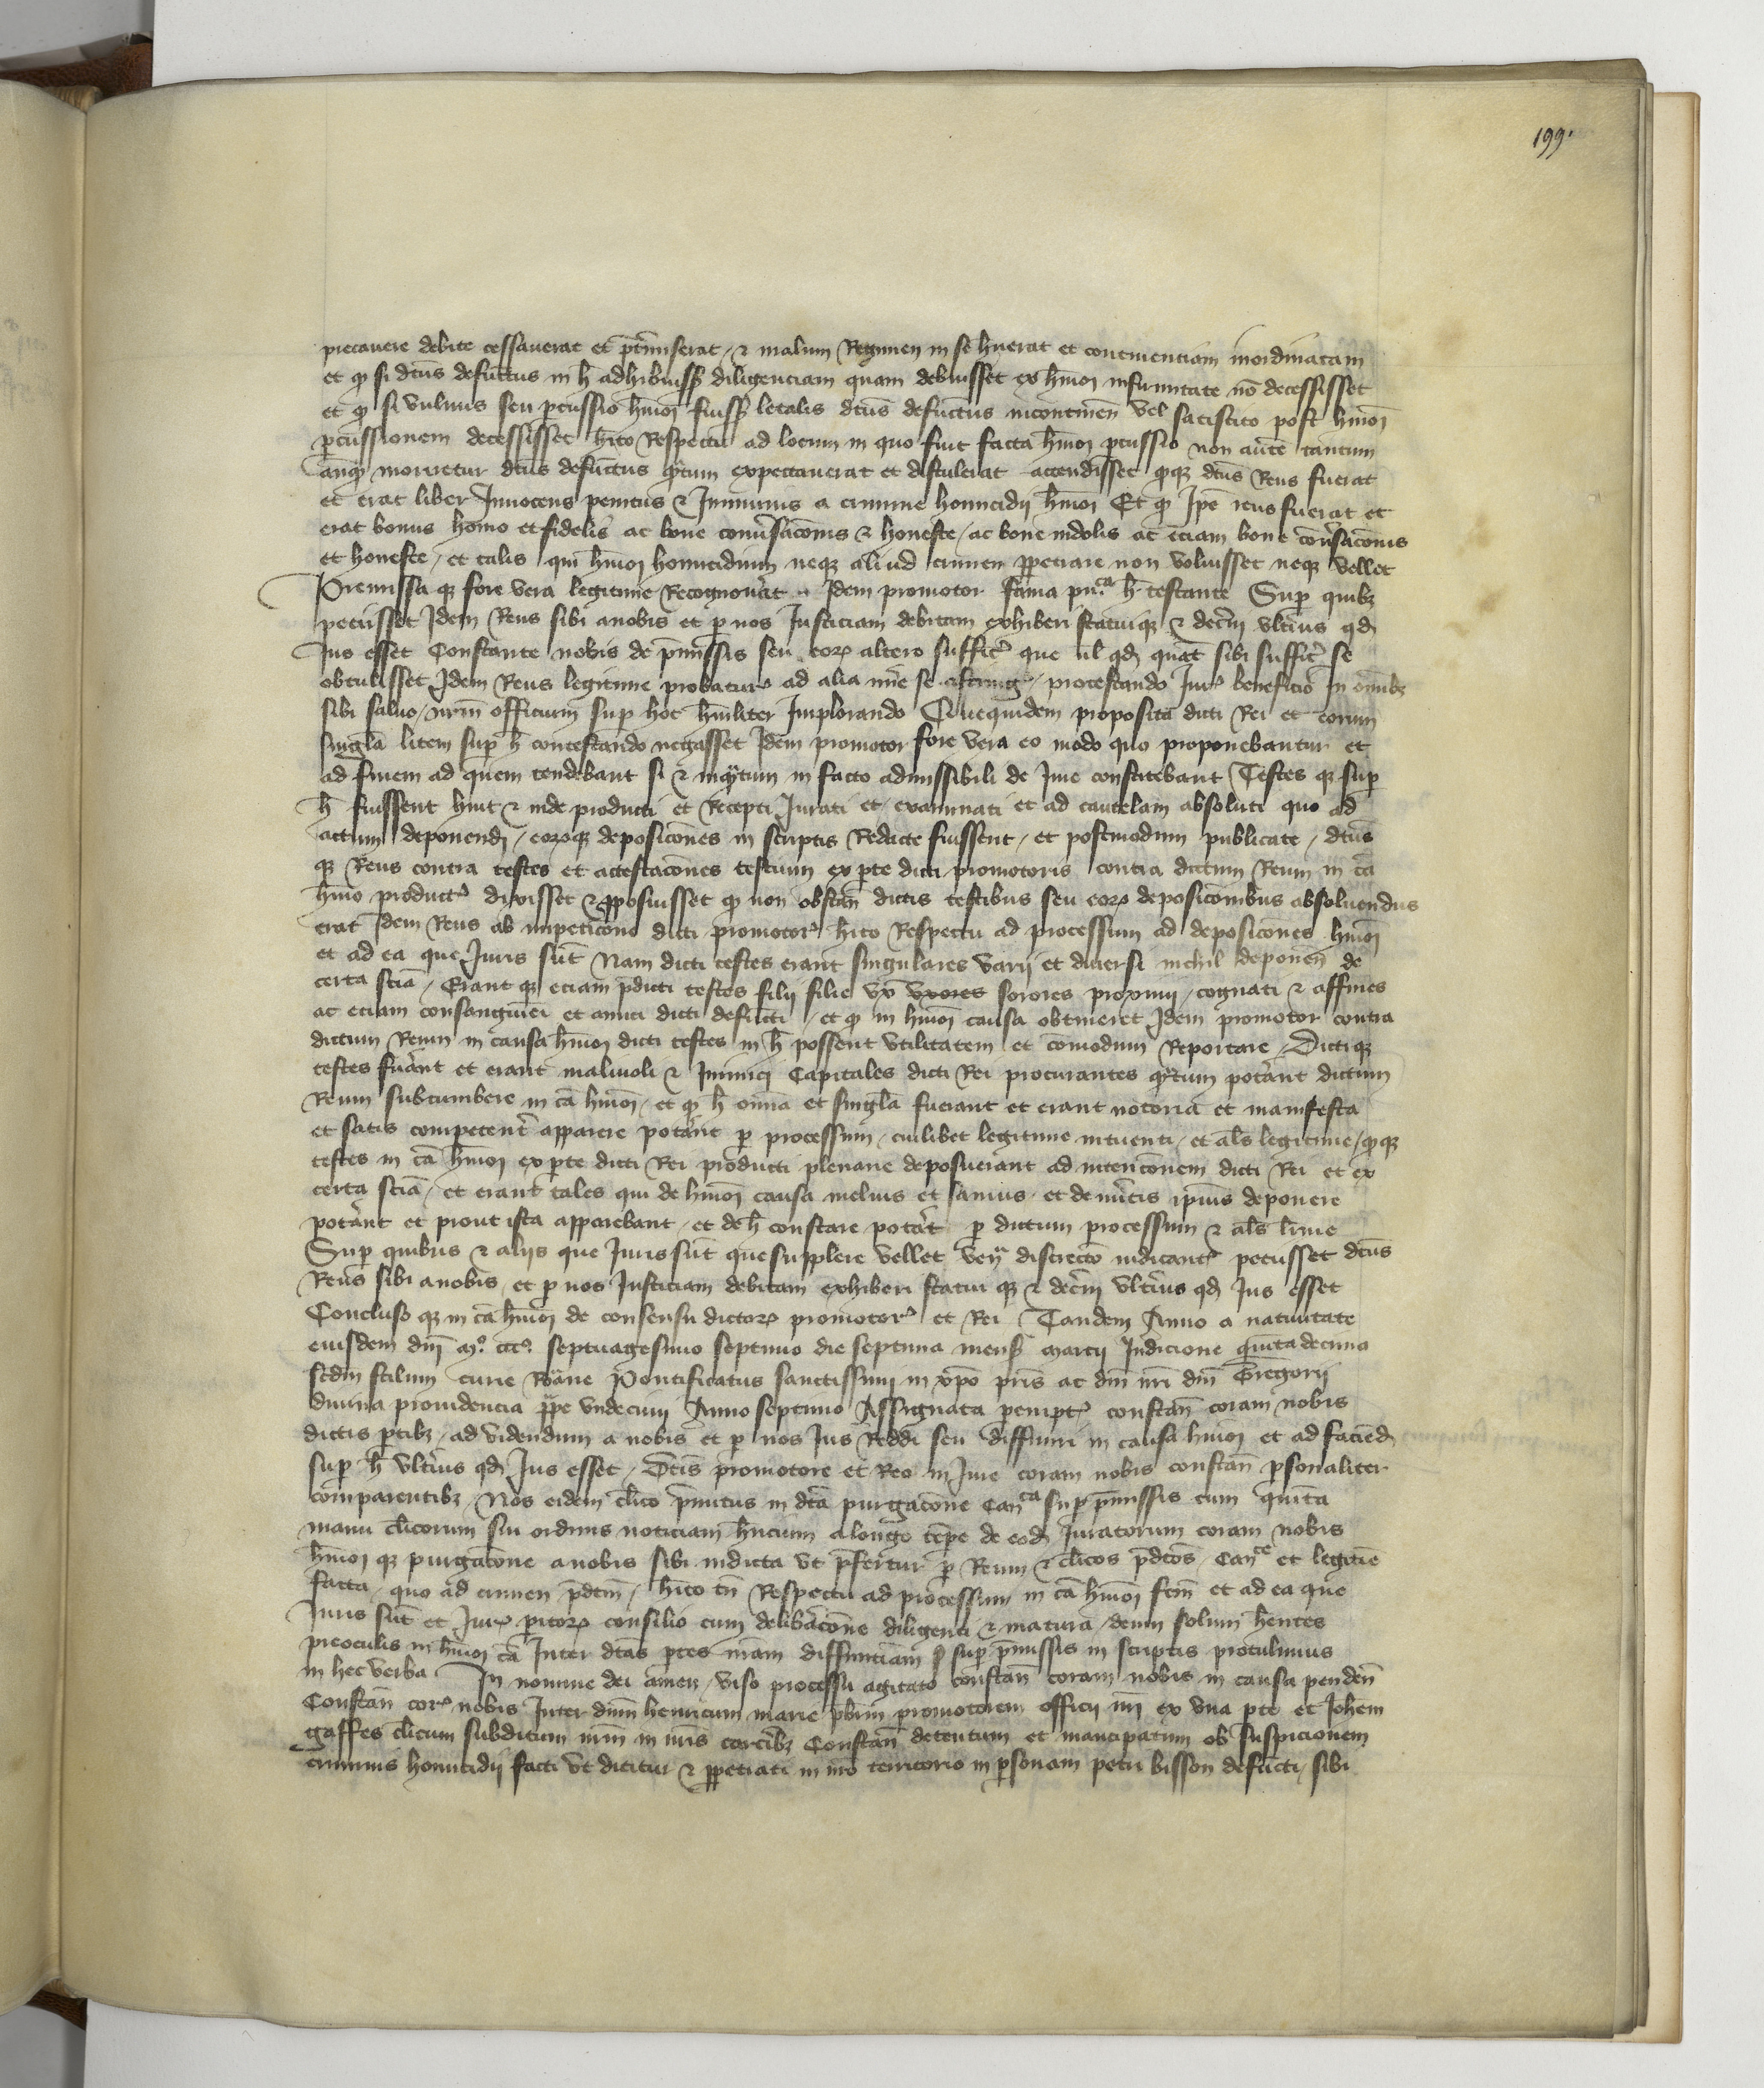 199.
precauere debite cessauerat et p̄t̄miserat / ⁊ malum Regimen in se hūerat et continentiam inordinatam
et qͥ si dc̄us defūctus in h̄ adhibuissꝫ diligenciam quam debuisset ex hm̄oi infirmitate nō decessisset
et qͥ si vulnus seu ꝑcussio hm̄oi fuissꝫ letalis dc̄us defūctus incontinen̄ vel satiscito post hm̄oi
ꝑcussionem decessisset hītō Respectu ad locum in quo fuit facta hm̄oi ꝑcussio non aūte tantum
anqͣ moriretur dc̄us defūctus qͣntum expectauerat et distulerat attendisset qͥqꝫ dc̄us Reus fuerat
et erat liber Innocens penitus ⁊ Inmunis a crimine homicidij hm̄oi Et qͥ Ip̄e reus fuerat et
erat bonus homo et fidelis ac bone conūsac̄onis ⁊ honeste / ac bone indolis ac ec̄iam bone cōūsac̄onis
et honeste / et talis qui hm̄oi homicidium neqꝫ aliud crimen ꝑpetrare non voluisset neqꝫ vellet
Premissa qꝫ fore vera legitime Recognou̓at Idem promotor fama pu.ᶜᵃ h̄ testante Suꝑ quibꝫ
petiisset Idem Reus sibi a nobis et ꝑ nos Iusticiam debitam exhiberi statuiqꝫ ⁊ dec̄ni vlt̓ius qd̄
Ius esset Constante nobis de p̄missis seu eoꝝ altero suffic̄ que ul qd̄ quat̄ sibi suffic̄ se
obtulisset Idem Reus legitime probatur̄ ad alia mīe se astrinḡ / protestando Iur̄ beneficio in oīnibꝫ
sibi saluo / nr̄m officium suꝑ hoc hūiliter Implorando Quequidem proposita dicti Rei et eorum
singla litem suꝑ h̄ contestando negasset Idem promotor fore vera eo modo quo proponebantur et
ad finem ad quem tendebant si ⁊ inqͣntum in facto admissibili de Iure constitebant Testes qꝫ suꝑ
h̄ fuissent hinc ⁊ inde producti et Recepti Iurati et examinati et ad cautelam absoluti quo ad
actum deponendi / eoꝝqꝫ deposic̄ones in scriptis Redacte fuissent / et postmodum publicate / dc̄us
qꝫ Reus contra testes et attestac̄ones testium ex ꝑte dicti promotoris contra dictum Reum in cā
hm̄oi product̄ dixisset ⁊ ꝓposuisset qͥ non obstan̄ dictis testibus seu eoꝝ deposic̄onibus absoluendus
erat Idem Reus ab impetic̄one dicti promotor̄ hītō Respectu ad processum ad deposic̄ones hm̄oi
et ad ea que Iuris sūt Nam dicti testes erant singulares varij et diuersi nichil deponen̄ de
certa sciā / Erant qꝫ eciam p̄dicti testes filij filie vx̄ vxores sorores proximi / cognati ⁊ affines
ac eciam consanguinei et amici dicti defūcti / et qͥ in hm̄oi causa obtineret Idem promotor contra
dictum Reum in causa hm̄oi dicti testes in h̄ possent vtilitatem et comodum Reportare / Dictiqꝫ
testes fūant et erant maliuoli ⁊ Inimici Capitales dicti Rei procurantes qͣntum pot̓ant dictum
Reum subcumbere in cā hm̄oi / et qͥ h̄ oīna et singla fuerant et erant notoria et manifesta
et satis competent̓ apparere pot̓ant ꝑ processum / cuilibet legitime intuenti / et al̄s legitime / qͥqꝫ
testes in cā hm̄oi ex ꝑte dicti Rei producti plenarie deposuerant ad intenc̄onem dicti Rei et ex
certa sciā / et erant tales qui de hm̄oi causa melius et sanius et de m̄itis ip̄ius deponere
pot̓ant et prout ista apparebant / et de h̄ constare pot̓at ꝑ dictum processum ⁊ al̄s l̄ime
Suꝑ quibus ⁊ alijs que Iuris sūt que supplere vellet discretō iudicant̄ petiisset dc̄us
Reus sibi a nobis et ꝑ nos Iusticiam debitam exhiberi statui qꝫ ⁊ dec̄ni vlt̓ius qd̄ Ius esset
Concluso qꝫ in cā hm̄oi de consensu dictoꝝ promotor̄ et Rei / Tandem Anno a natiuitate
eiusdem dn̄i M.º ccc.º septuagesimo septimo die septima mensꝫ marcij Indicione quīta decima
scd̄m stilum curie Roāne Pontificatus sanctissimi in xp̄o pr̄is ac dn̄i nr̄i dn̄i Gregorij
diuina prouidencia ꝑpe vndecimi Anno septimo Assignata ꝑempt̄ constan̄ coram nobis
dictis ꝑtibꝫ / ad videndum a nobis et ꝑ nos Ius Reddi seu diffiniri in causa hm̄oi et ad faciend̄
suꝑ h̄ vlt̓ius qd̄ Ius esset / Dc̄is promotore et Reo in Iure coram nobis constan̄ ꝑsonaliter
comparentibꝫ / Nos eidem cl̄ico p̄mitus in dc̄a purgac̄one Canᶜᵃ suꝑ p̄missis cum quīta
manu cl̄icorum sui ordinis noticiam h̄ncium a longo tēpe de eod̄ Iuratorum coram nobis
hm̄oi qꝫ purgac̄one a nobis sibi indicta vt p̄fertur ꝑ Reum ⁊ cl̄icos p̄dc̄os / Canᶜᵉ et legitīe
facta / quo ad crimen p̄dc̄m / hītō tn̄ Respectu ad processum in cā hm̄oi fc̄m et ad ea que
Iuris sūt et Iur̄ ꝑitoꝝ consilio cum delib̓ac̄one diligenti ⁊ matura / deum solum h̄entes
preoculis in hm̄oi cā Inter dc̄as ꝑtes nr̄am diffinitiām s̄ suꝑ p̄missis in scriptis protulimus
in hec verba In nomine dei amen / viso processu agitato constan̄ coram nobis in causa penden̄
Constan̄ cor̄ nobis Inter dn̄m henricum marie p̄br̄m promotorem officij nr̄i ex vna ꝑte et Joh̄em
gaffes cl̄icum subditum nr̄m in nr̄is carc̄ibꝫ Constan̄ detentum et mancipatum ob suspicionem
criminis homicidij facti vt dicitur ⁊ ꝑpetrati in nr̄o territorio in ꝑsonam petri bisson defūcti / sibi